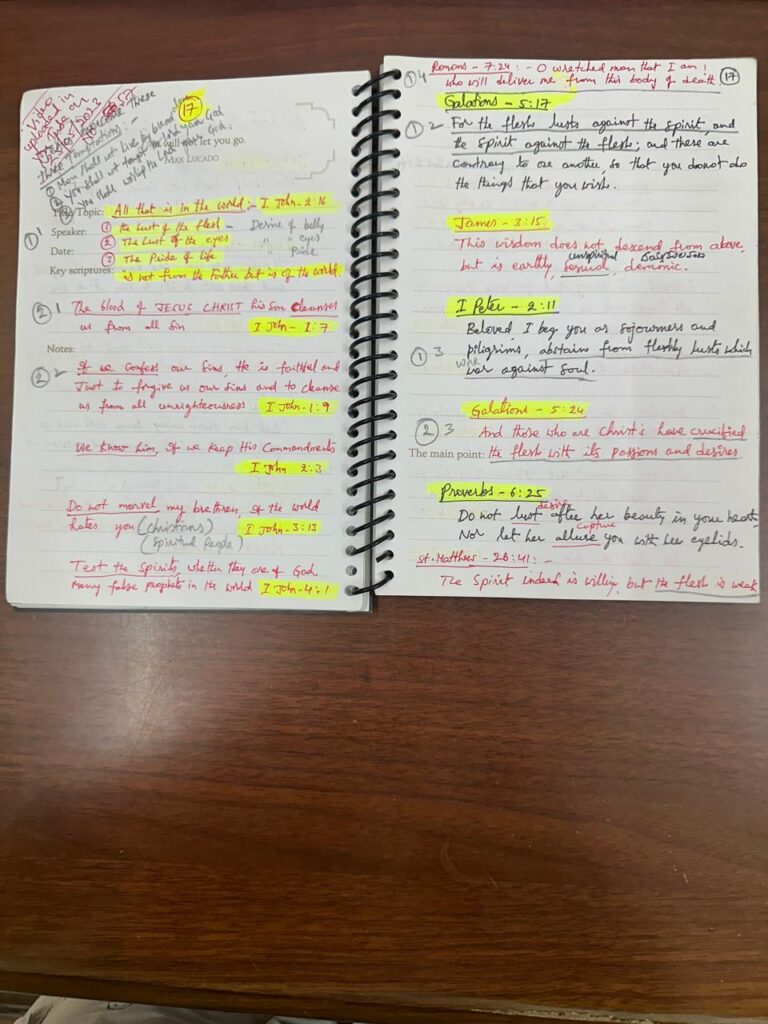 Video
uploaded in
17
these
three Temptation :-
① Man shall not live by bread
② You shall not tempt the Lord your God
You shall worship the Lord your God.
will not let you go.
MAX LUCADO
Topic: All that is in the world :- I John - 2:16
①1
Speaker: ① The Lust of the flesh - Desire of belly
② The Lust of the eyes " " eyes
Date: ③ The Pride of Life " " Pride
Key scriptures: is not from the Father but is of the world
②1 The blood of JESUS CHRIST his son cleanses
us from all Sin I John - 1:7
Notes:
②2 If we confess our Sins, He is faithful and
Just to forgive us our Sins and to cleanse
us from all unrighteousness I John - 1:9
We know him, If we keep His Commandments
I John 2:3
Do not marvel my brethren, If the world
hates you (Christians) I John - 3:13
(Spiritual People)
Test the Spirits, whether they are of God
Many false prophets in the world I John - 4:1
①4 Romans - 7:24 :- O wretched man that I am!
who will deliver me from this body of death 17
Galations - 5:17
①2 For the flesh lusts against the Spirit, and
the Spirit against the flesh; and these are
contrary to one another, so that you do not do
the things that you wish.
James - 3:15
This wisdom does not descend from above,
unspiritual
but is earthly, sensual, demonic.
I Peter - 2:11
Beloved I beg you as sojourners and
①3 piligrims, abstain from fleshly lusts which
wage
war against soul.
Galations - 5:24
②3 And those who are Christ's have crucified
The main point: the flesh with its passions and desires
Proverbs - 6:25
desire
Do not lust after her beauty in your heart
capture
Nor let her allure you with her eyelids.
St. Matthew - 26:41 :-
The Spirit indeed is willing, but the flesh is weak